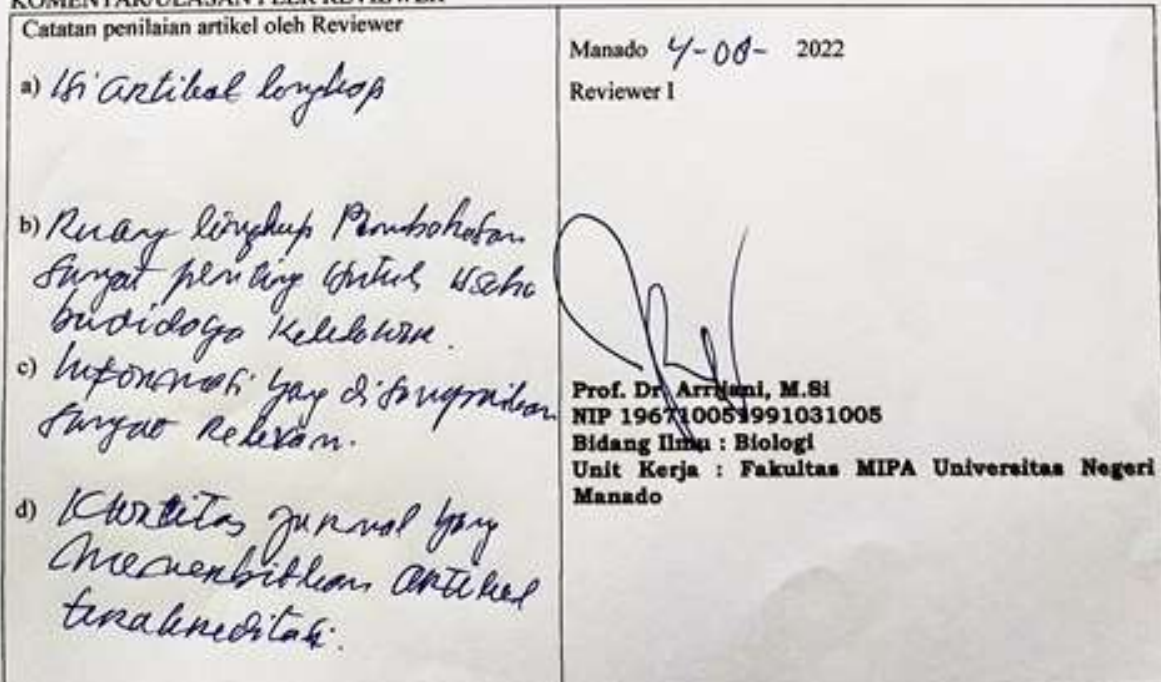 KOMENTAR/ULASAN PEER REVIEWER
Catatan penilaian artikel oleh Reviewer
a) Isi artikel lengkap
b) Ruang lingkup Pembahasan
sangat penting untuk usaha
budidaya
c) Informasi yang disampaikan
sangat relevan.
d) Kwalitas jurnal yang
menerbitkan artikel
terakreditasi.
Manado 4-08- 2022
Reviewer I
Prof. Dr. Arrijani, M.Si
NIP 196710051991031005
Bidang Ilmu : Biologi
Unit Kerja : Fakultas MIPA Universitas Negeri
Manado